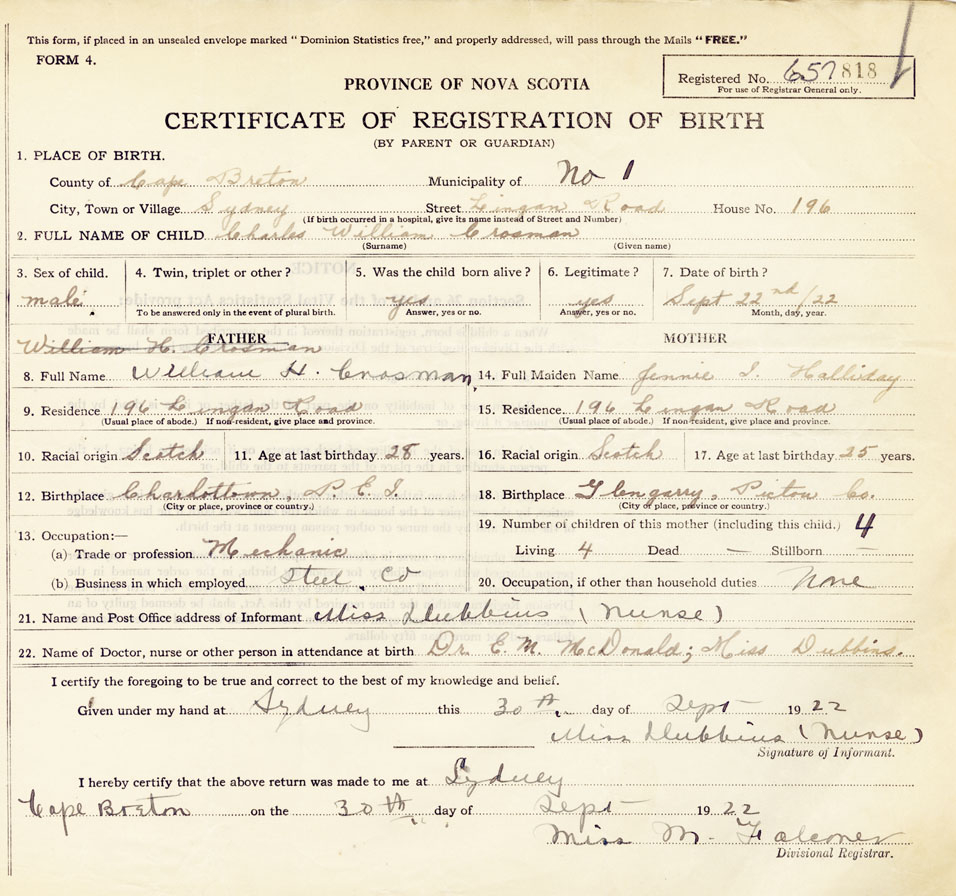 This form, if placed in an unsealed envelope marked "Dominion Statistics free," and properly addressed, will pass through the Mails "FREE."
FORM 4.
Registered No. 657 818
For use of Registrar General only.
PROVINCE OF NOVA SCOTIA
CERTIFICATE OF REGISTRATION OF BIRTH
(BY PARENT OR GUARDIAN)
1. PLACE OF BIRTH.
County of Cape Breton Municipality of No 1
City, Town or Village Sydney Street Lingan Road House No. 196
(If birth occurred in a hospital, give its name instead of Street and Number)
2. FULL NAME OF CHILD Charles William Crosman
(Surname) (Given name)
3. Sex of child. 4. Twin, triplet or other? 5. Was the child born alive? 6. Legitimate? 7. Date of birth?
male yes yes Sept 22nd/22
To be answered only in the event of plural birth. Answer, yes or no. Answer, yes or no. Month, day, year.
FATHER MOTHER
William H. Crosman
8. Full Name William H. Crosman, 14. Full Maiden Name Jennie I. Halliday
9. Residence 196 Lingan Road 15. Residence 196 Lingan Road
(Usual place of abode.) If non-resident, give place and province. (Usual place of abode.) If non-resident, give place and province.
10. Racial origin Scotch 11. Age at last birthday 28 years. 16. Racial origin Scotch 17. Age at last birthday 25 years.
12. Birthplace Charlottown, P.E.I. 18. Birthplace Glengarry, Pictou Co.
(City or place, province or country.) (City or place, province or country.)
19. Number of children of this mother (including this child.) 4
13. Occupation:—
(a) Trade or profession Mechanic Living 4 Dead — Stillborn —
(b) Business in which employed Steel Co 20. Occupation, if other than household duties None
21. Name and Post Office address of Informant Miss Dubbins (Nurse)
22. Name of Doctor, nurse or other person in attendance at birth Dr. E. M. McDonald; Miss Dubbins.
I certify the foregoing to be true and correct to the best of my knowledge and belief.
Given under my hand at Sydney this 30th. day of Sept 1922
Miss Dubbins (Nurse)
Signature of Informant.
I hereby certify that the above return was made to me at Sydney
Cape Breton on the 30th day of Sept 1922
Miss M. Falconer
Divisional Registrar.